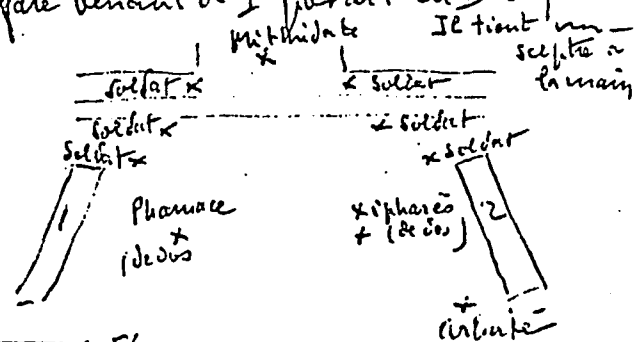 venant de
Mithridate Il tient un
sceptre à
la main
soldat x x soldat
soldat x x soldat
soldat x x soldat
1 Pharnace xiphares 2
x x (de dos)
(de dos
x